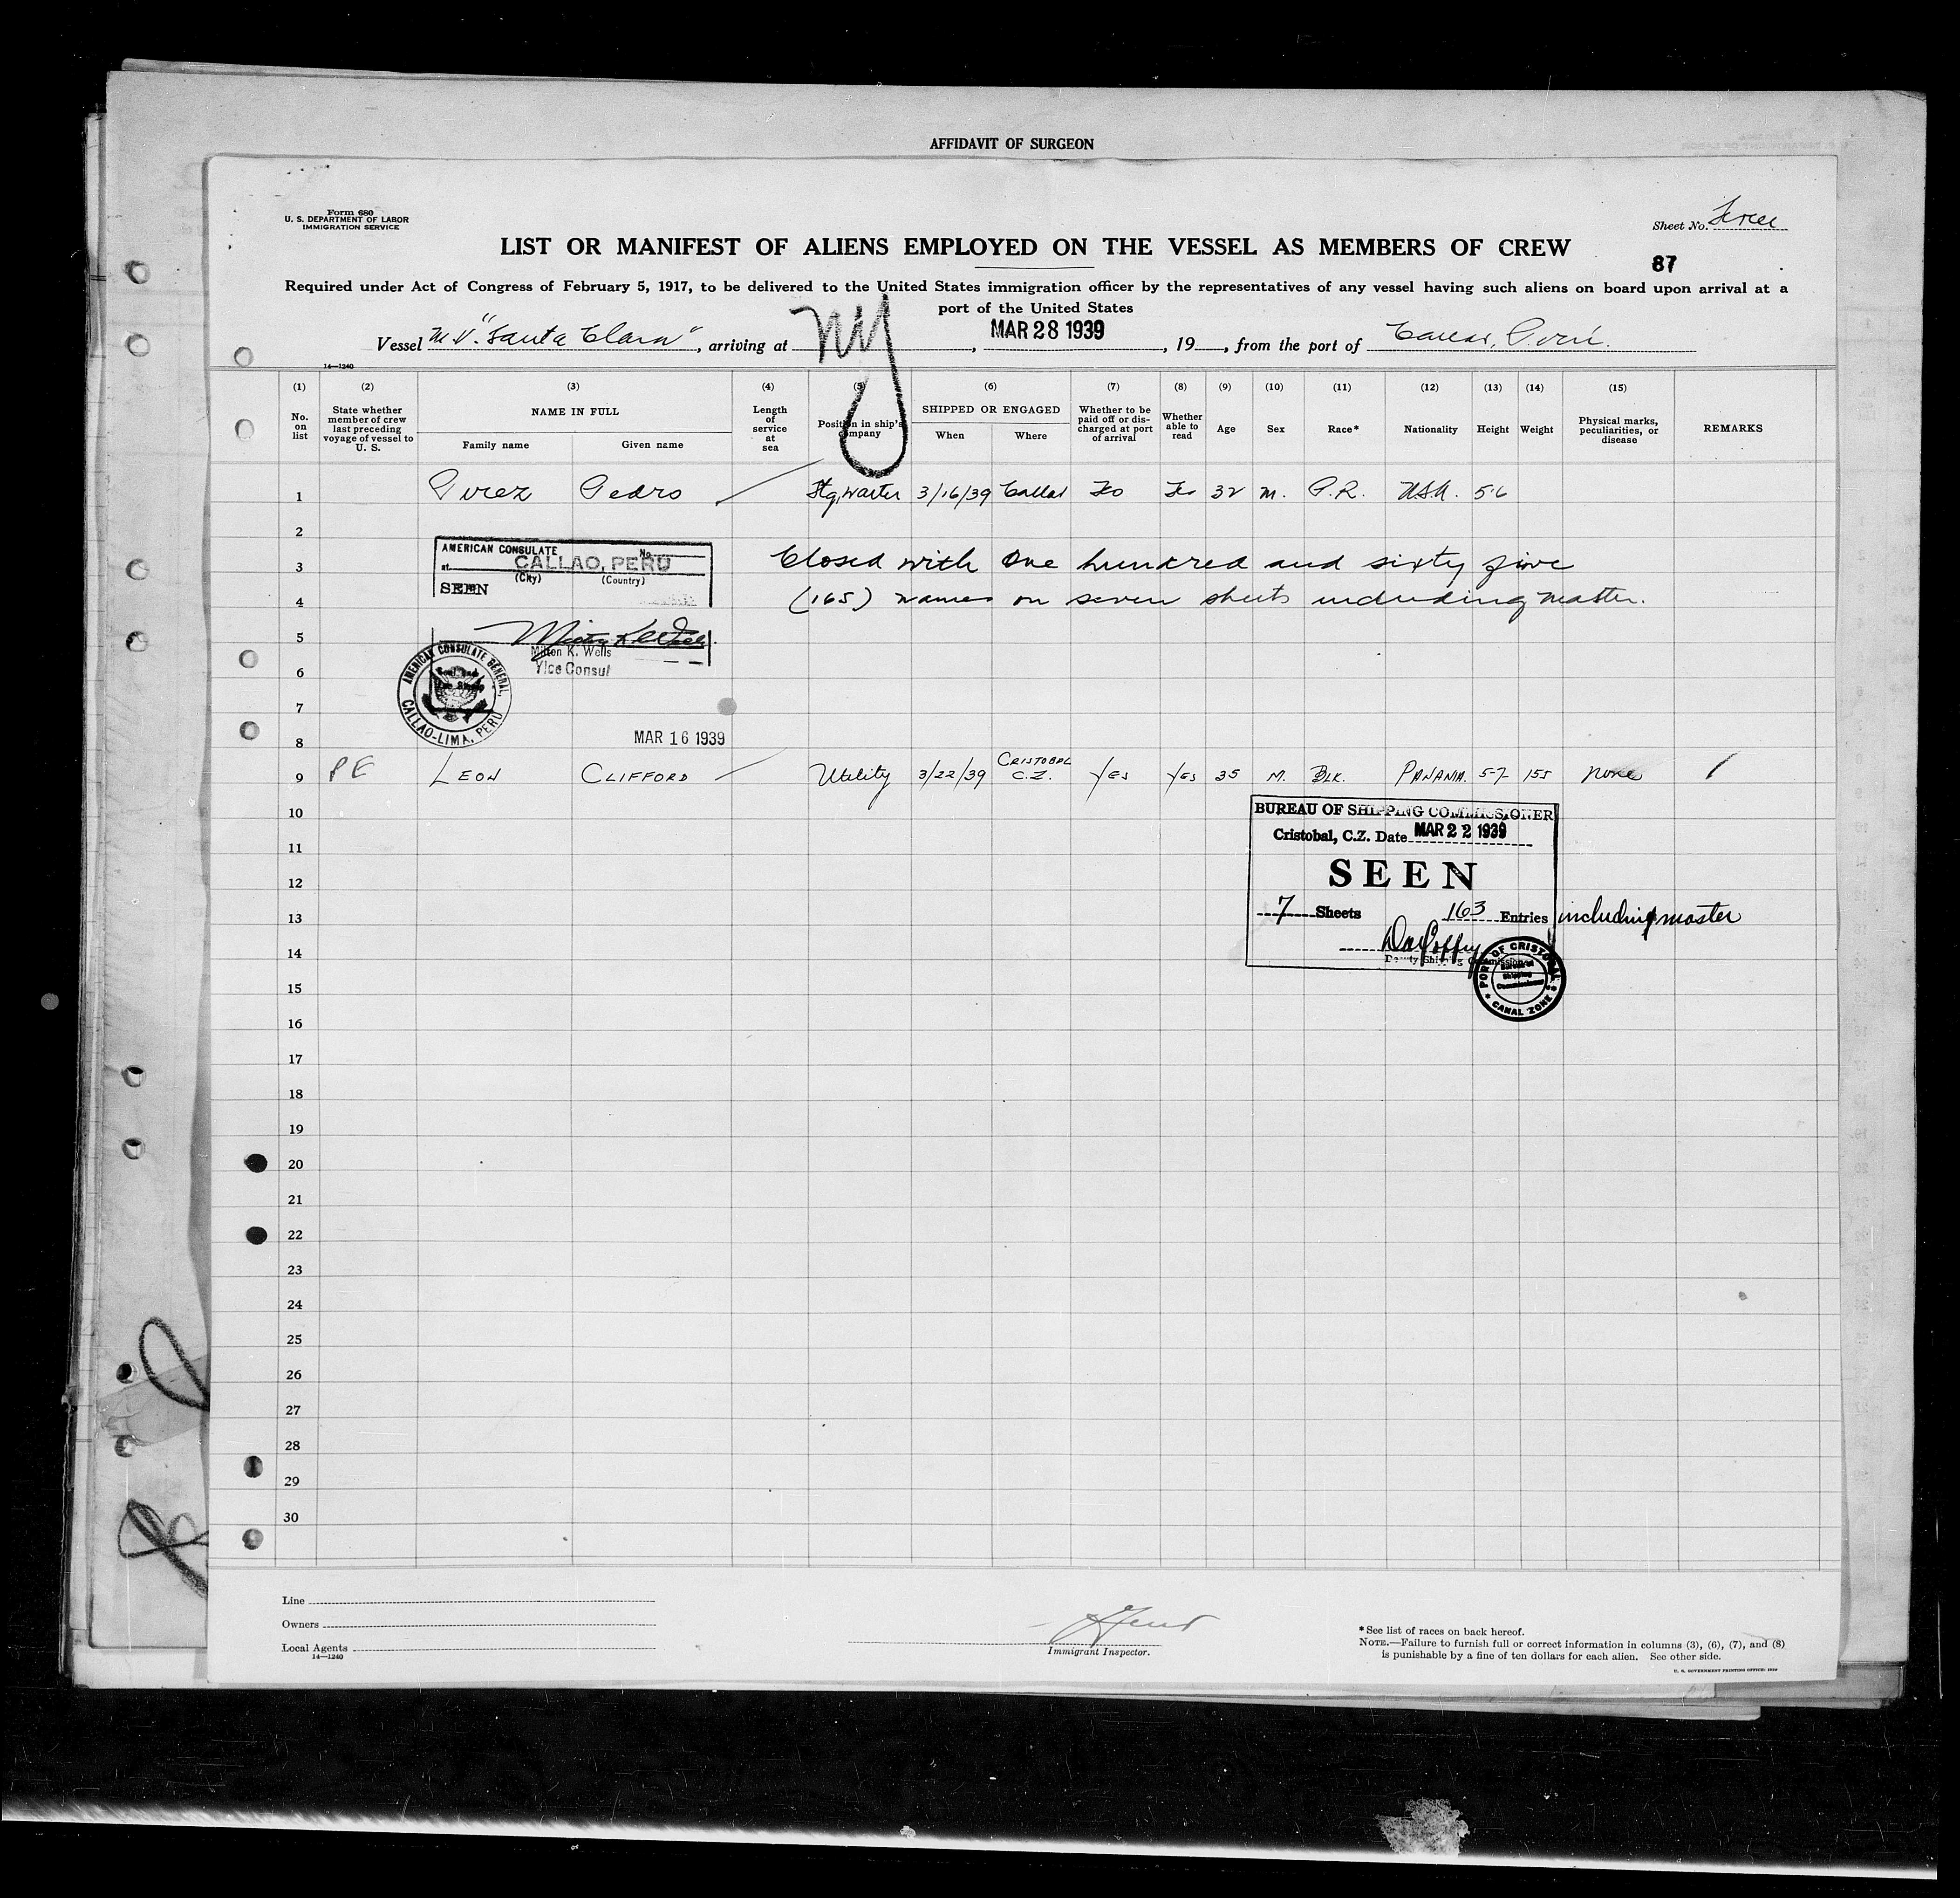 AFFIDAVIT OF SURGEON
Form 680
U. S. DEPARTMENT OF LABOR
IMMIGRATION SERVICE
Sheet No.
LIST OR MANIFEST OF ALIENS EMPLOYED ON THE VESSEL AS MEMBERS OF CREW
87
Required under Act of Congress of February 5, 1917, to be delivered to the United States immigration officer by the representatives of any vessel having such aliens on board upon arrival at a
port of the United States
Vessel M.V. "Santa Clara", arriving at NY, MAR 28 1939, 19__, from the port of Callao, Perú.
14—1240
(1) (2) (3) (4) (5) (6) (7) (8) (9) (10) (11) (12) (13) (14) (15)
No. on list
State whether member of crew last preceding voyage of vessel to U. S.
NAME IN FULL
Family name
Given name
Length of service at sea
Position in ship's company
SHIPPED OR ENGAGED
When
Where
Whether to be paid off or discharged at port of arrival
Whether able to read
Age
Sex
Race*
Nationality
Height
Weight
Physical marks, peculiarities, or disease
REMARKS
1 Pedro 3/16/39 Callao 32 m. P.R. U.S.A. 5'6
2
AMERICAN CONSULATE No.
at CALLAO, PERU
(City) (Country)
SEEN
3 Closed with One hundred and sixty five
4 (165) names on seven sheets including master.
5
Milton K. Wells
Vice Consul
AMERICAN CONSULATE GENERAL, CALLAO-LIMA, PERU
6
7
MAR 16 1939
8
9 PE LEON CLIFFORD Utility 3/22/39 CRISTOBAL C.Z. YES YES 35 M. BLK. PANAMA. 5-7 155 none
10
BUREAU OF SHIPPING COMMISSIONER
Cristobal, C.Z. Date MAR 22 1939
11
SEEN
12
13
7 Sheets 163 Entries including master
14
Deputy Shipping Commissioner
PORT OF CRISTOBAL
Bureau of Shipping Commissioner
CANAL ZONE
15
16
17
18
19
20
21
22
23
24
25
26
27
28
29
30
Line
Owners
Local Agents
14—1240
Immigrant Inspector.
*See list of races on back hereof.
NOTE.—Failure to furnish full or correct information in columns (3), (6), (7), and (8)
is punishable by a fine of ten dollars for each alien. See other side.